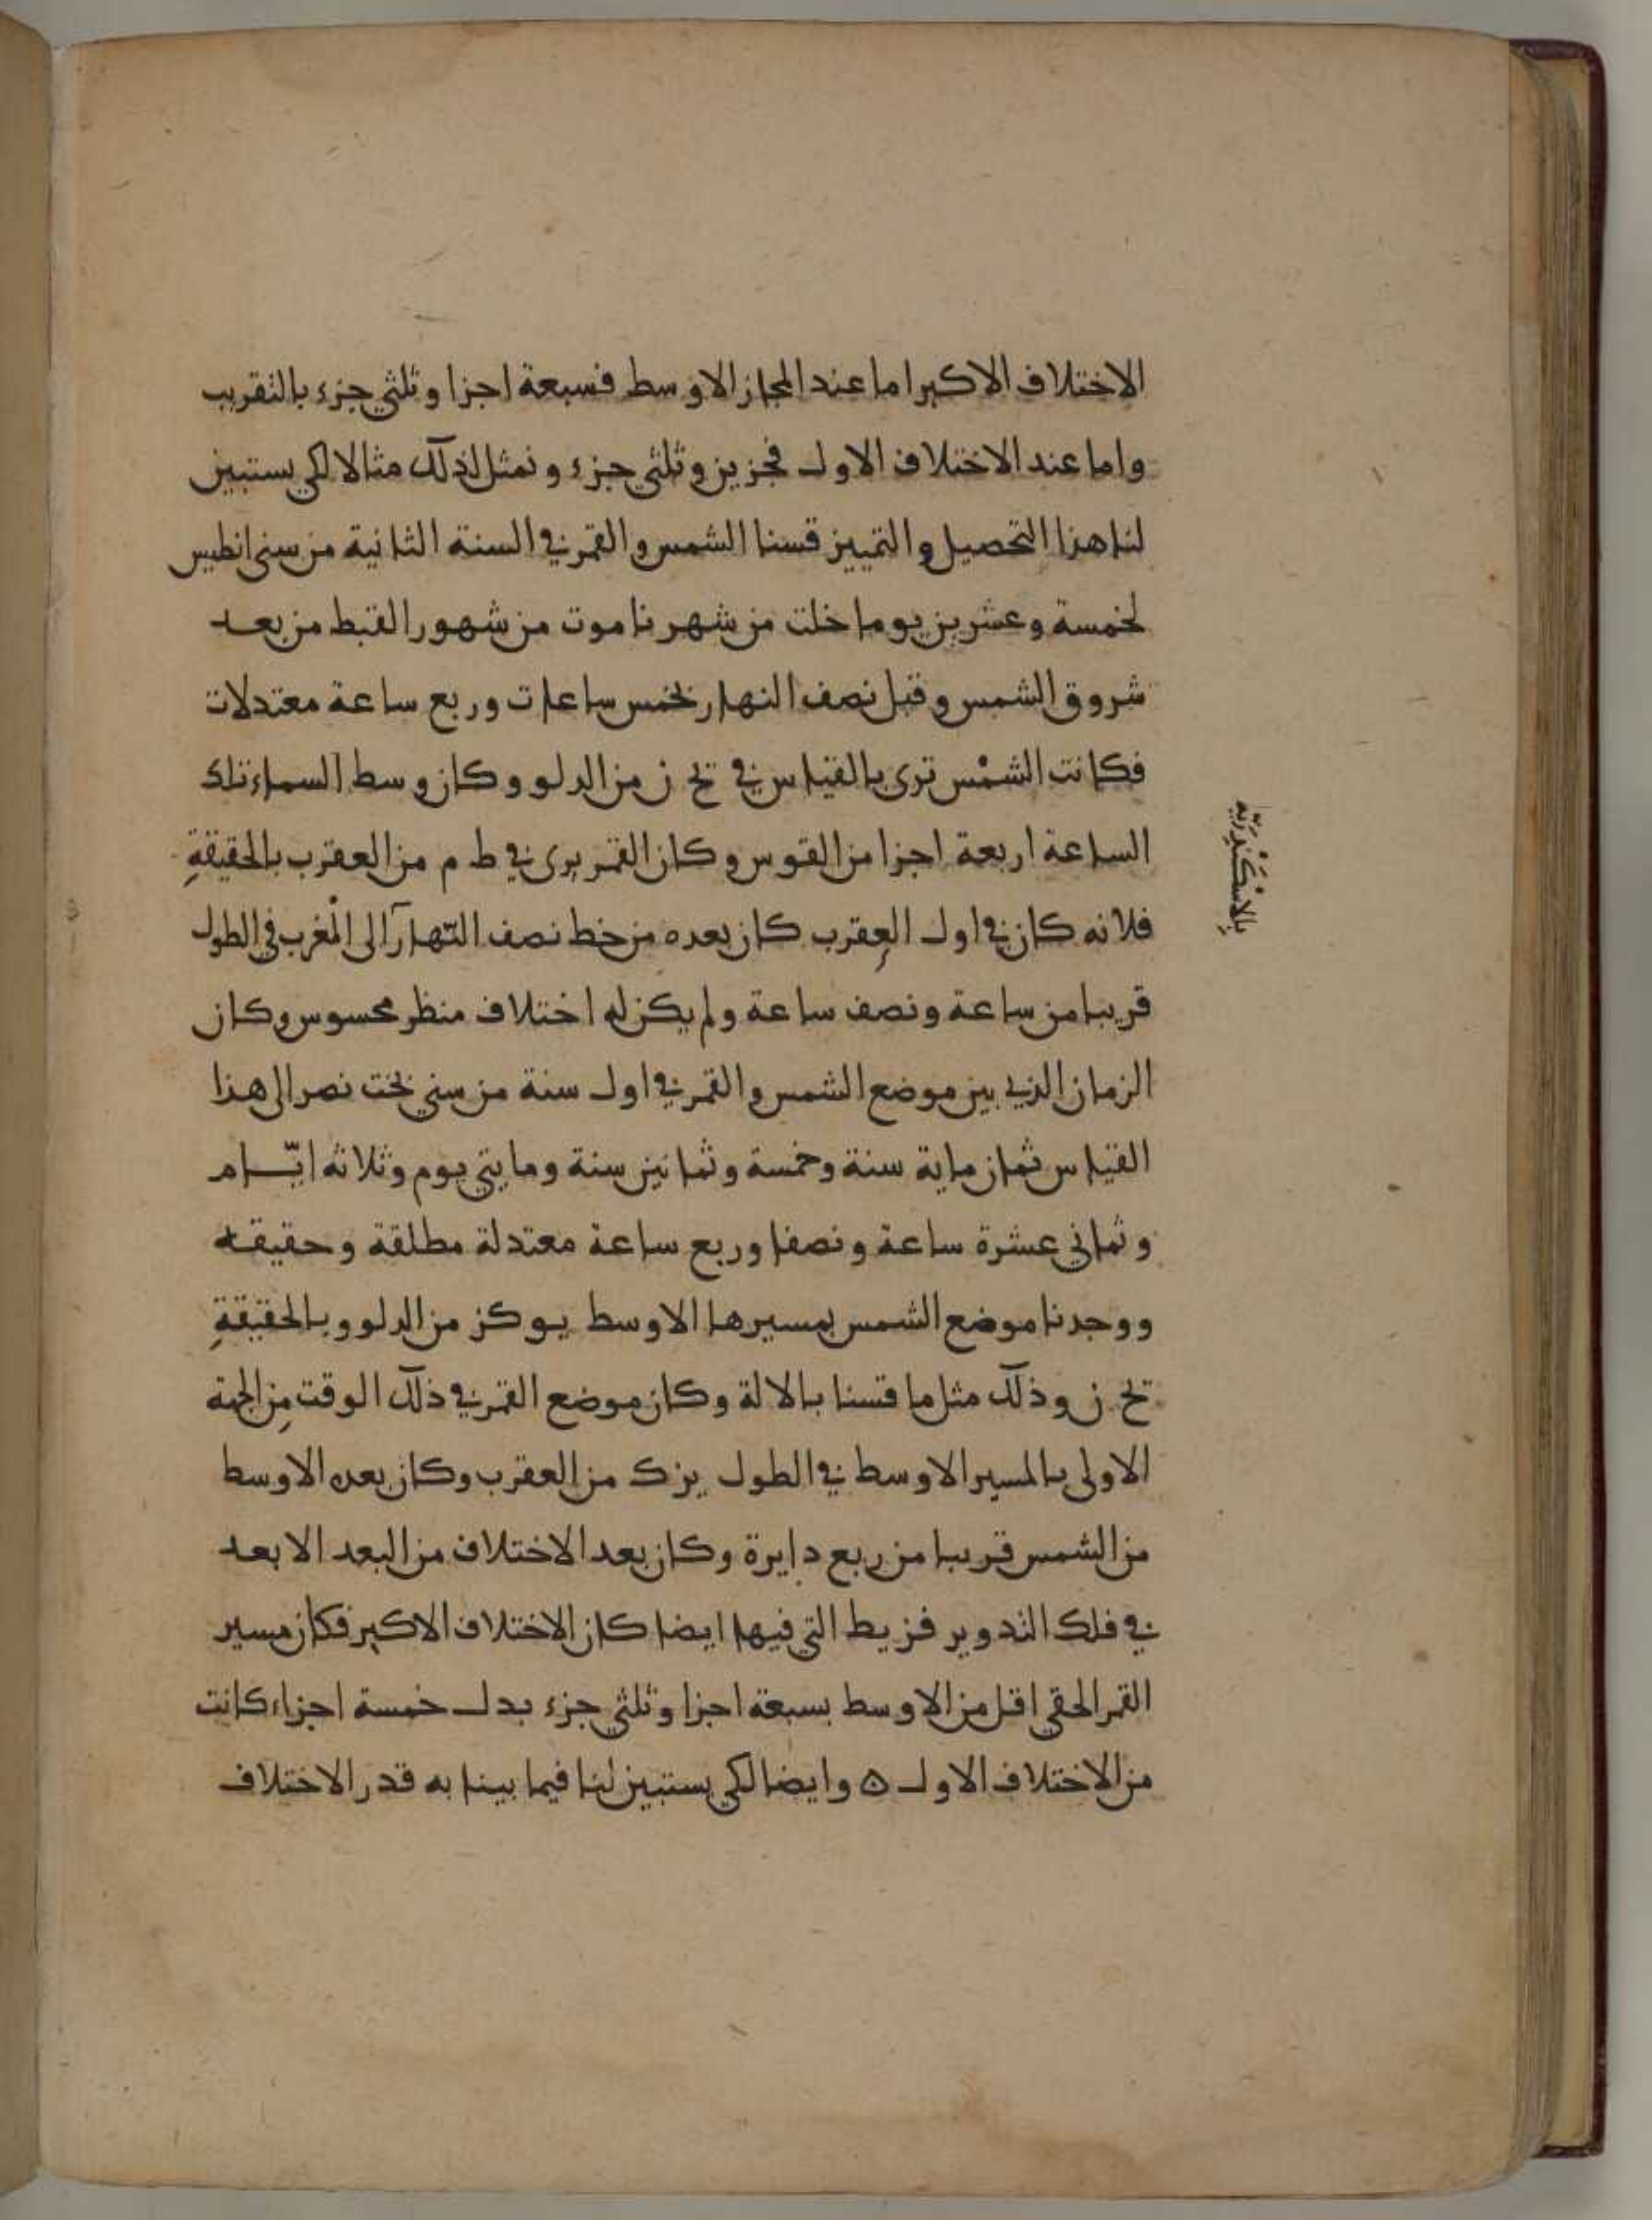 الاختلاف الاكبر اما عند المجاز الاوسط فسبعة اجزا وثلثي جزء بالتقريب
واما عند الاختلاف الاول فجزين وثلثي جزء ونمثل لذلك مثالا لكي يستبين
لنا هذا التحصيل والتمييز قسنا الشمس والقمر في السنة الثانية من سني انطيس
لخمسة وعشرين يوما خلت من شهر ناموت من شهور القبط من بعد
شروق الشمس وقبل نصف النهار بخمس ساعات وربع ساعة معتدلات
فكانت الشمْس ترى بالقياس في يح ن من الدلو وكان وسط السماء تلك
الساعة اربعة اجزا من القوس وكان القمر يرى في ط م من العقرب بالحقيقةِ
بِالاسْكَنْدِرَيّه
فلانه كان في اول العقرب كان بعده من خط نصف النّهار الى المْغرب في الطول
قريبا من ساعة ونصف ساعة ولم يكن له اختلاف منظر محسوس وكان
الزمان الذي بين موضع الشمس والقمر في اول سنة من سني بخت نصر الى هذا
القياس ثمان ماية سنة وخمسة وثمانين سنة ومايتي يوم وثلاثه ايّام
وثماني عشرة ساعة ونصفا وربع ساعة معتدلة مطلقة وحقيقه
ووجدنا موضع الشمس بمسيرها الاوسط يو كز من الدلو وبالحقيقةِ
يح ن وذلك مثل ما قسنا بالالة وكان موضع القمر في ذلك الوقت مِن الجهة
الاولى بالمسير الاوسط في الطول يز ك من العقرب وكان بعده الاوسط
من الشمس قريبا من ربع دايرة وكان بعد الاختلاف من البعد الابعد
في فلك التدوير فز يط التي فيها ايضا كان الاختلاف الاكبر فكان مسير
القمر الحقي اقل من الاوسط بسبعة اجزا وثلثي جزء بدل خمسة اجزاء كانت
من الاختلاف الاول ۵ وايضا لكي يستبين لنا فيما بينا به قدر الاختلاف